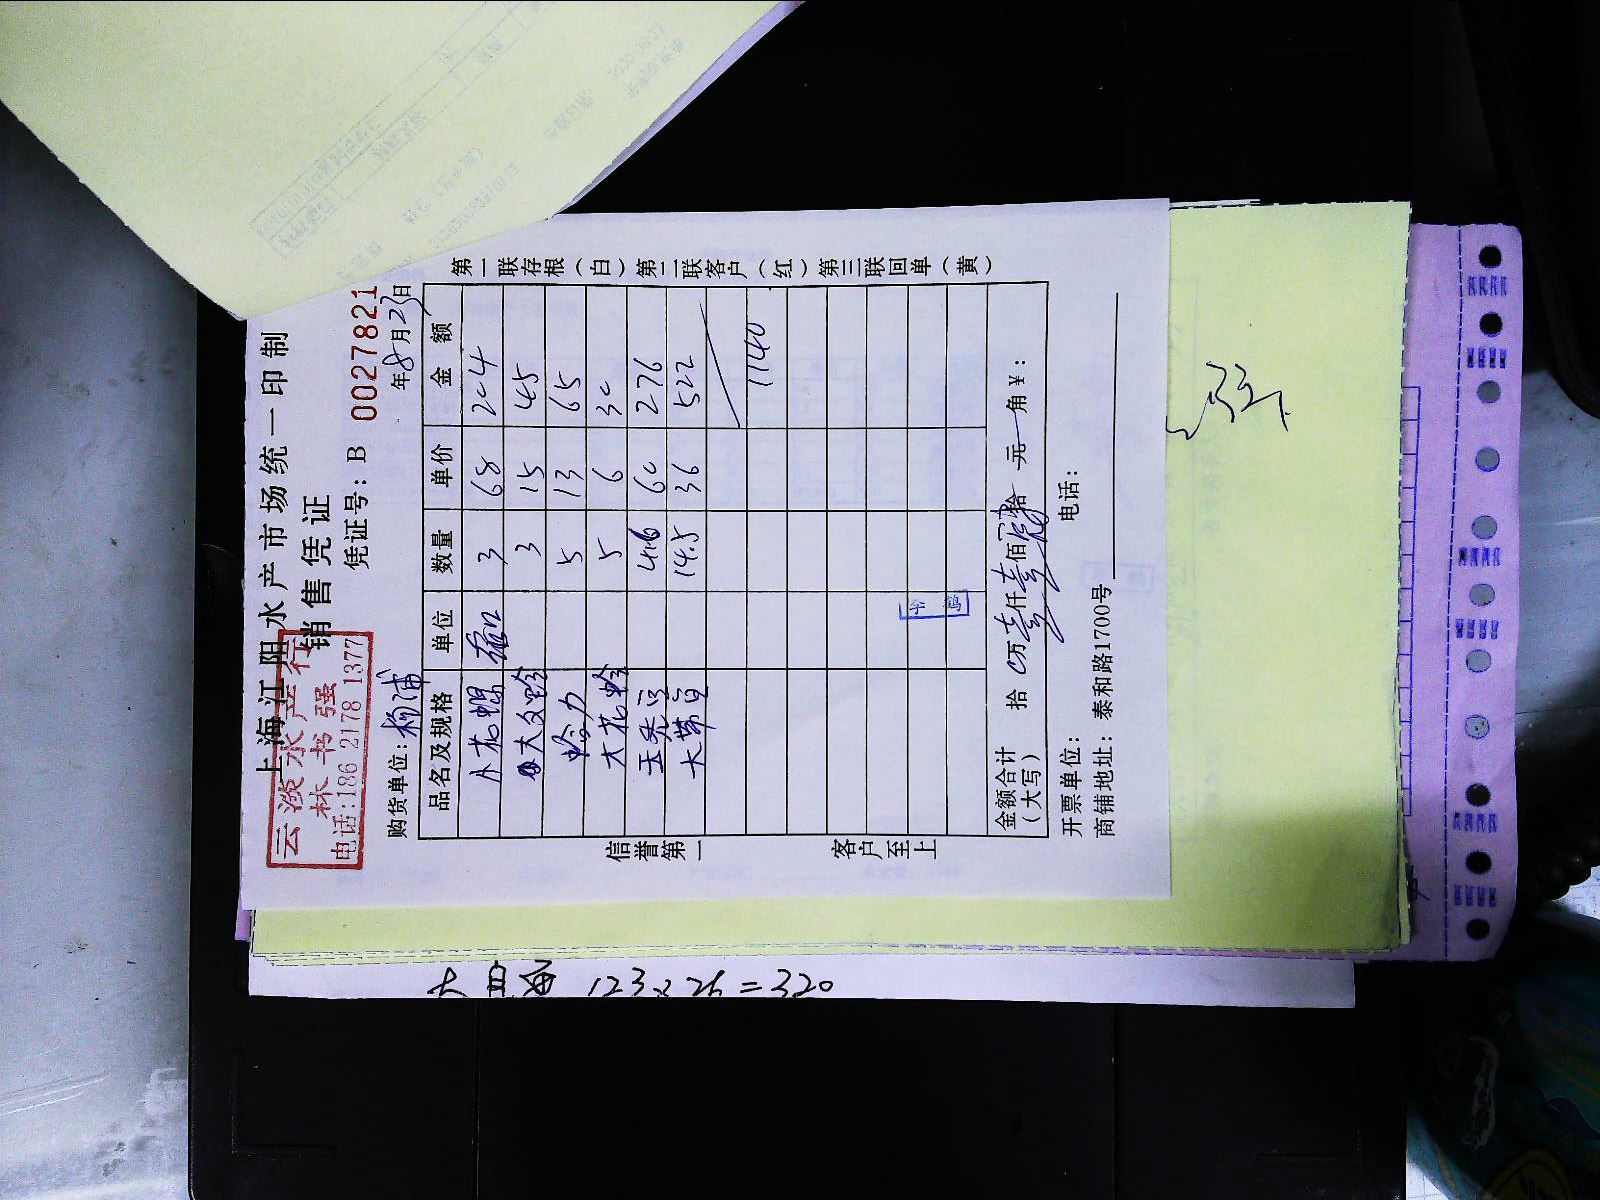 上海江阳水产市场统一印制
销售凭证
云淡水产行
林书强
电话:186 2178 1377
凭证号: B 0027821
购货单位: 杨浦
年8月23日
品名及规格 单位 数量 单价 金额
小花螺 3 68 204
大文蛤 3 15 45
蛤力 5 13 65
大花蛤 5 6 30
玉秃 4.6 60 276
大带鱼 14.5 36 522
1140
金额合计（大写） 拾 0万壹仟壹佰肆拾 元 角 ¥:
开票单位: 电话:
商铺地址: 泰和路1700号
第一联存根（白）第二联客户（红）第三联回单（黄）
信誉第一
客户至上
123x26=320